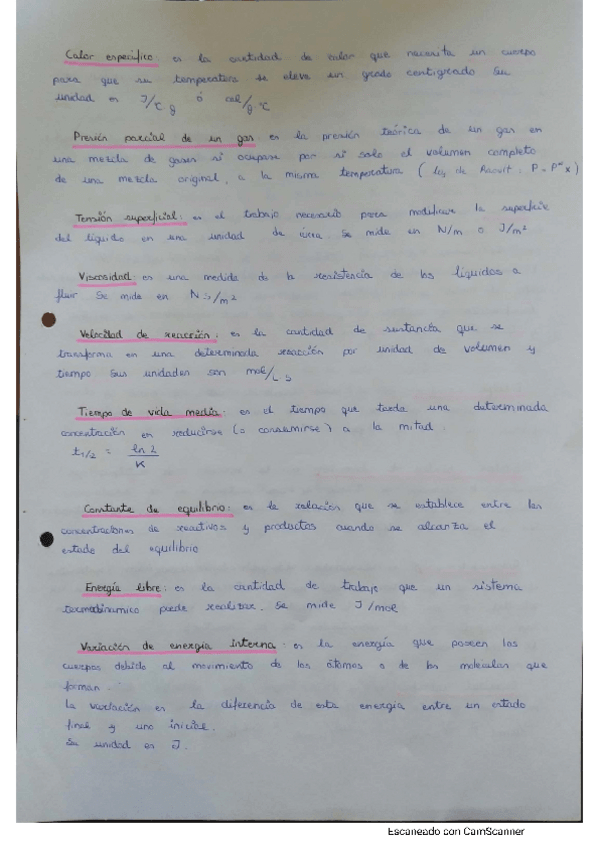 Calor específico: es la cantidad de calor que necesita un cuerpo
para que su temperatura se eleve un grado centígrado Su
unidad es J/ºC g ó cal/g ºC
Presión parcial de un gas es la presión teórica de un gas en
una mezcla de gases si ocupase por si solo el volumen completo
de una mezcla original, a la misma temperatura ( ley de Raoult : P = Pº x )
Tensión superficial: es el trabajo necesario para modificar la superficie
del líquido en una unidad de área. Se mide en N/m o J/m²
Viscosidad: es una medida de la resistencia de los líquidos a
fluir Se mide en N s/m²
Velocidad de reacción: es la cantidad de sustancia que se
transforma en una determinada reacción por unidad de volumen y
tiempo Sus unidades son mol/L s
Tiempo de vida media: es el tiempo que tarda una determinada
concentración en reducirse (o consumirse) a la mitad.
t1/2 = ln 2 / K
Constante de equilibrio: es la relación que se establece entre las
concentraciones de reactivos y productos cuando se alcanza el
estado del equilibrio
Energía libre: es la cantidad de trabajo que un sistema
termodinámico puede realizar. Se mide J/mol
Variación de energía interna: es la energía que poseen los
cuerpos debido al movimiento de los átomos o de las moléculas que
forman.
la variación es la diferencia de esta energía entre un estado
final y uno inicial.
Su unidad es J.
Escaneado con CamScanner